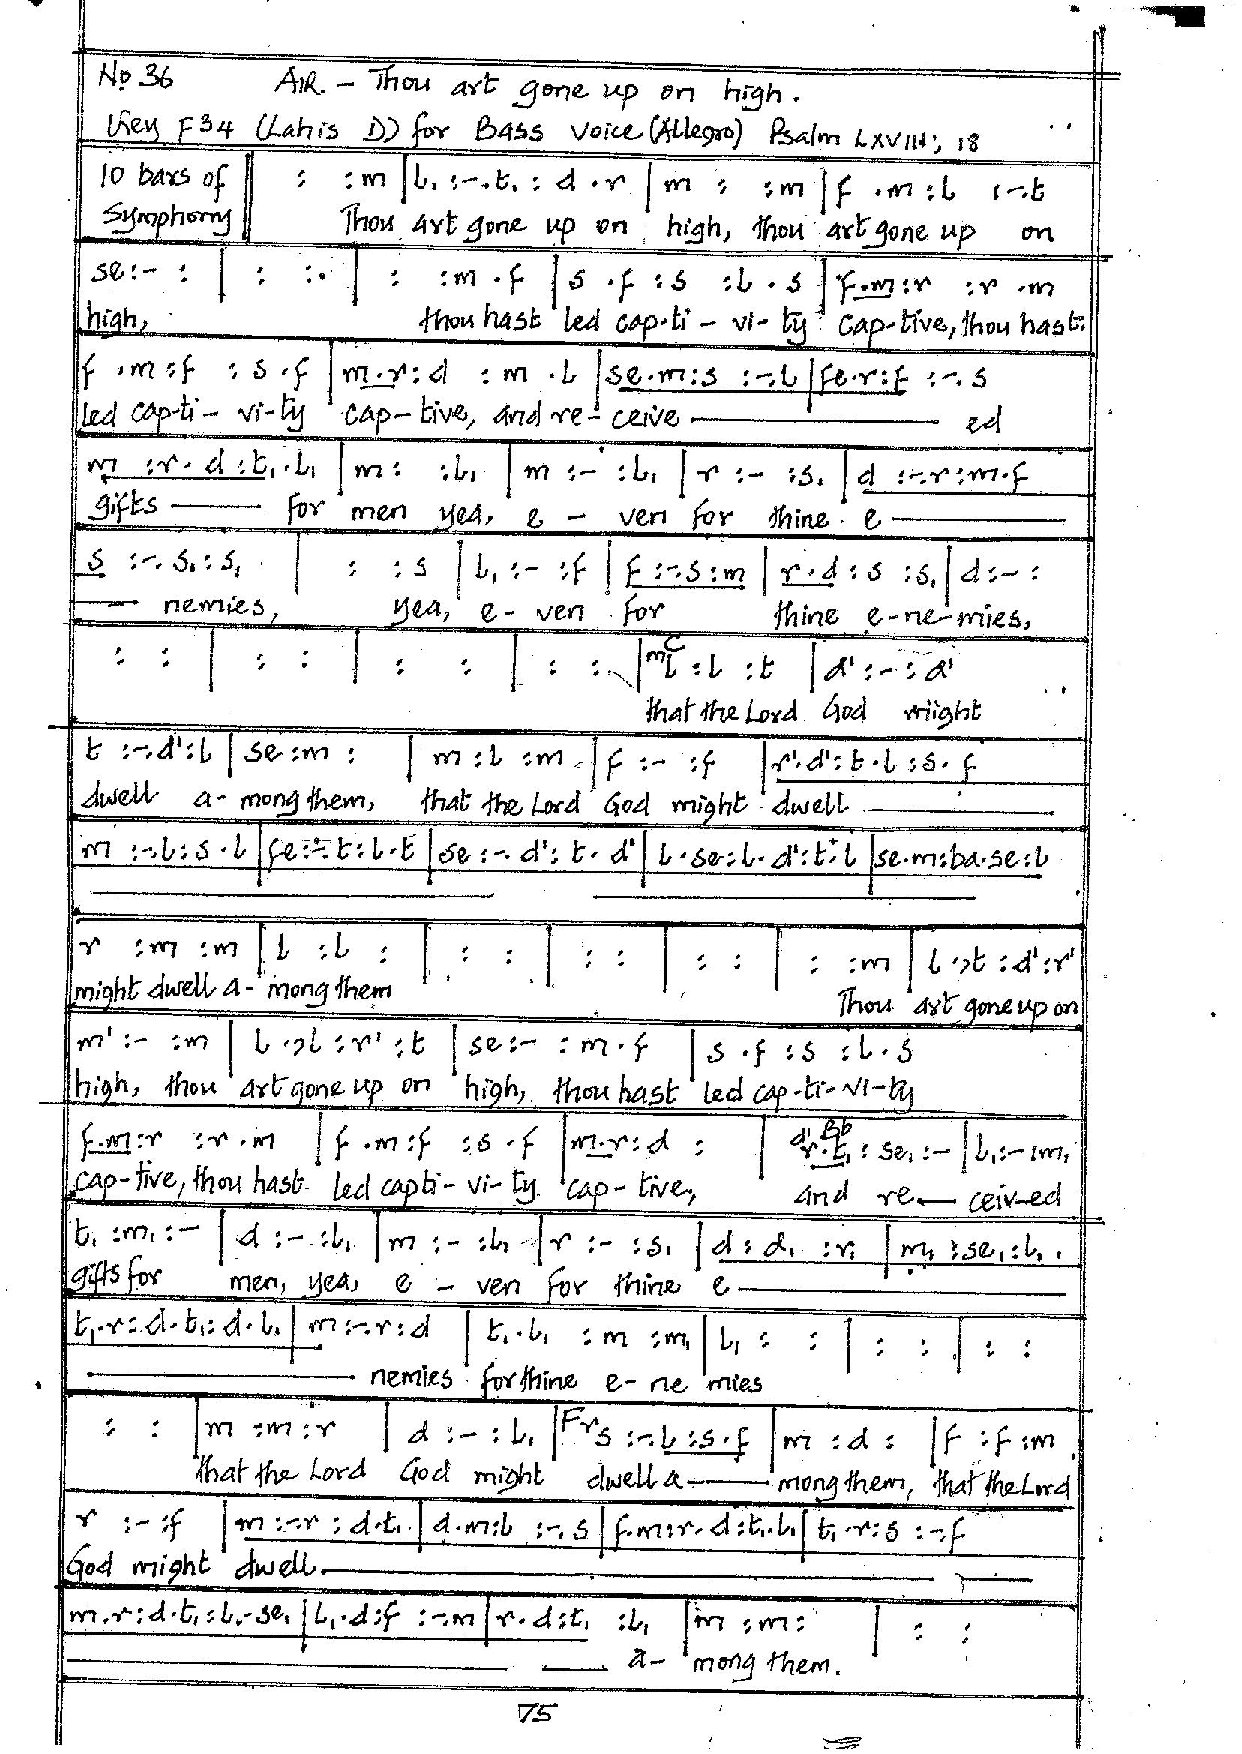 No 36 AIR. – Thou art gone up on high.
Key F 34 (Lah is D) for BASS Voice (Allegro) Psalm LXVIII; 18
10 bars of : :m | l₁ :-.t₁ : d .r | m : :m | f .m :l :-.t
Symphony Thou art gone up on high, thou art gone up on
se :- : | : :. | : :m .f | s .f :s :l .s | f.m :r :r .m
high, thou hast led cap-ti-vi-ty cap-tive, thou hast
f .m :f :s .f | m.r :d :m .l | se.m:s :-.l | fe.r:f :-.s
led cap-ti-vi-ty cap-tive, and re-ceive ——— ed
m :r.d :t₁.l₁ | m : :l₁ | m :- :l₁ | r :- :s₁ | d :-.r :m.f
gifts —— for men yea, e – ven for thine e ———
s :-.s₁ :s₁ | : :s | l₁ :- :f | f :-.s :m | r.d :s :s₁ | d :- :
—— nemies, yea, e-ven for thine e-ne-mies,
: : | : : | : : | : : | ᵐl :l :t | d' :- :d'
C
that the Lord God might
t :-.d' :l | se :m : | m :l :m | f :- :f | r'.d' :t.l :s.f
dwell a-mong them, that the Lord God might dwell ———
m :-.l :s.l | fe :-.t :l.t | se :-.d' :t.d' | l.se :l.d' :t.l | se.m :ba.se :l
r :m :m | l :l : | : : | : : | : : | : :m | l .,t :d' :r'
might dwell a-mong them Thou art gone up on
m' :- :m | l .,l :r' :t | se :- :m.f | s .f :s :l .s
high, thou art gone up on high, thou hast led cap-ti-vi-ty
f.m :r :r .m | f .m :f :s .f | m.r :d : | d'r.t₁ :se₁ :- | l₁ :- :m₁
Bb
cap-tive, thou hast led capti-vi-ty cap-tive, and re— ceiv-ed
t₁ :m₁ :- | d :- :l₁ | m :- :l₁ | r :- :s₁ | d :d₁ :r₁ | m₁ :se₁ :l₁
gifts for men, yea, e – ven for thine e ———
t₁.r :d.t₁ :d.l₁ | m :-.r :d | t₁.l₁ :m :m₁ | l₁ : : | : : | : :
——— nemies for thine e-ne mies
: : | m :m :r | d :- :l₁ | F r s :-.l :s.f | m :d : | f :f :m
that the Lord God might dwell a—— mong them, that the Lord
r :- :f | m :-.r :d.t₁ | d.m :l :-.s | f.m :r.d :t₁.l₁ | t₁.r :s :-.f
God might dwell ———
m.r :d.t₁ :l₁.se₁ | l₁.d :f :-.m | r.d :t₁ :l₁ | m :m : | : :
a- mong them.
75